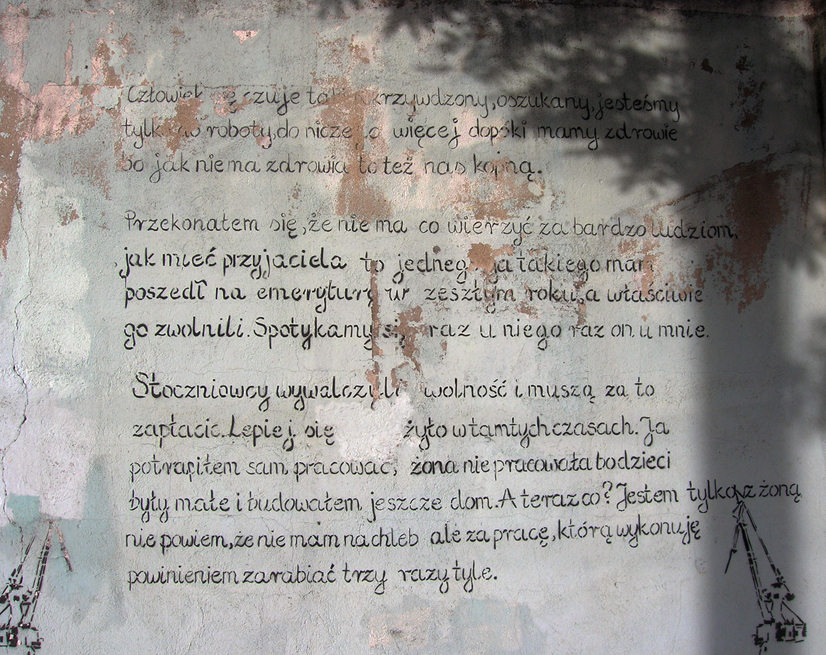 Człowiek czuje krzywdzony, oszukany, jesteśmy
tylko do roboty, do nicze więcej dopóki mamy zdrowie
bo jak nie ma zdrowia to też nas kopną.
Przekonałem się, że nie ma co wierzyć za bardzo ludziom,
jak mieć przyjaciela to jedneg ja takiego mam
poszedł na emeryturę w zeszłym roku, a właściwie
go zwolnili. Spotykamy się raz u niego raz on u mnie.
Stoczniowcy wywalczyli wolność i muszą za to
zapłacić. Lepiej się żyło w tamtych czasach. Ja
potrafiłem sam pracować, żona nie pracowała bo dzieci
były małe i budowałem jeszcze dom. A teraz co? Jestem tylko z żoną
nie powiem, że nie mam na chleb ale za pracę, którą wykonuję
powinieniem zarabiać trzy razy tyle.